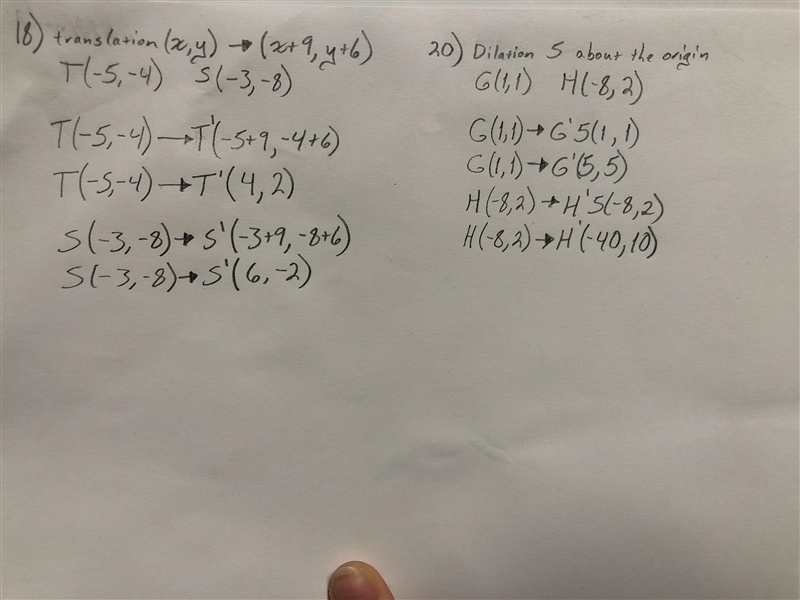 18) translation (x,y) → (x+9, y+6)
T(-5,-4) S(-3,-8)
T(-5,-4) → T'(-5+9, -4+6)
T(-5,-4) → T'(4,2)
S(-3,-8) → S'(-3+9, -8+6)
S(-3,-8) → S'(6,-2)
20) Dilation 5 about the origin
G(1,1) H(-8,2)
G(1,1) → G'5(1,1)
G(1,1) → G'(5,5)
H(-8,2) → H'5(-8,2)
H(-8,2) → H'(-40,10)